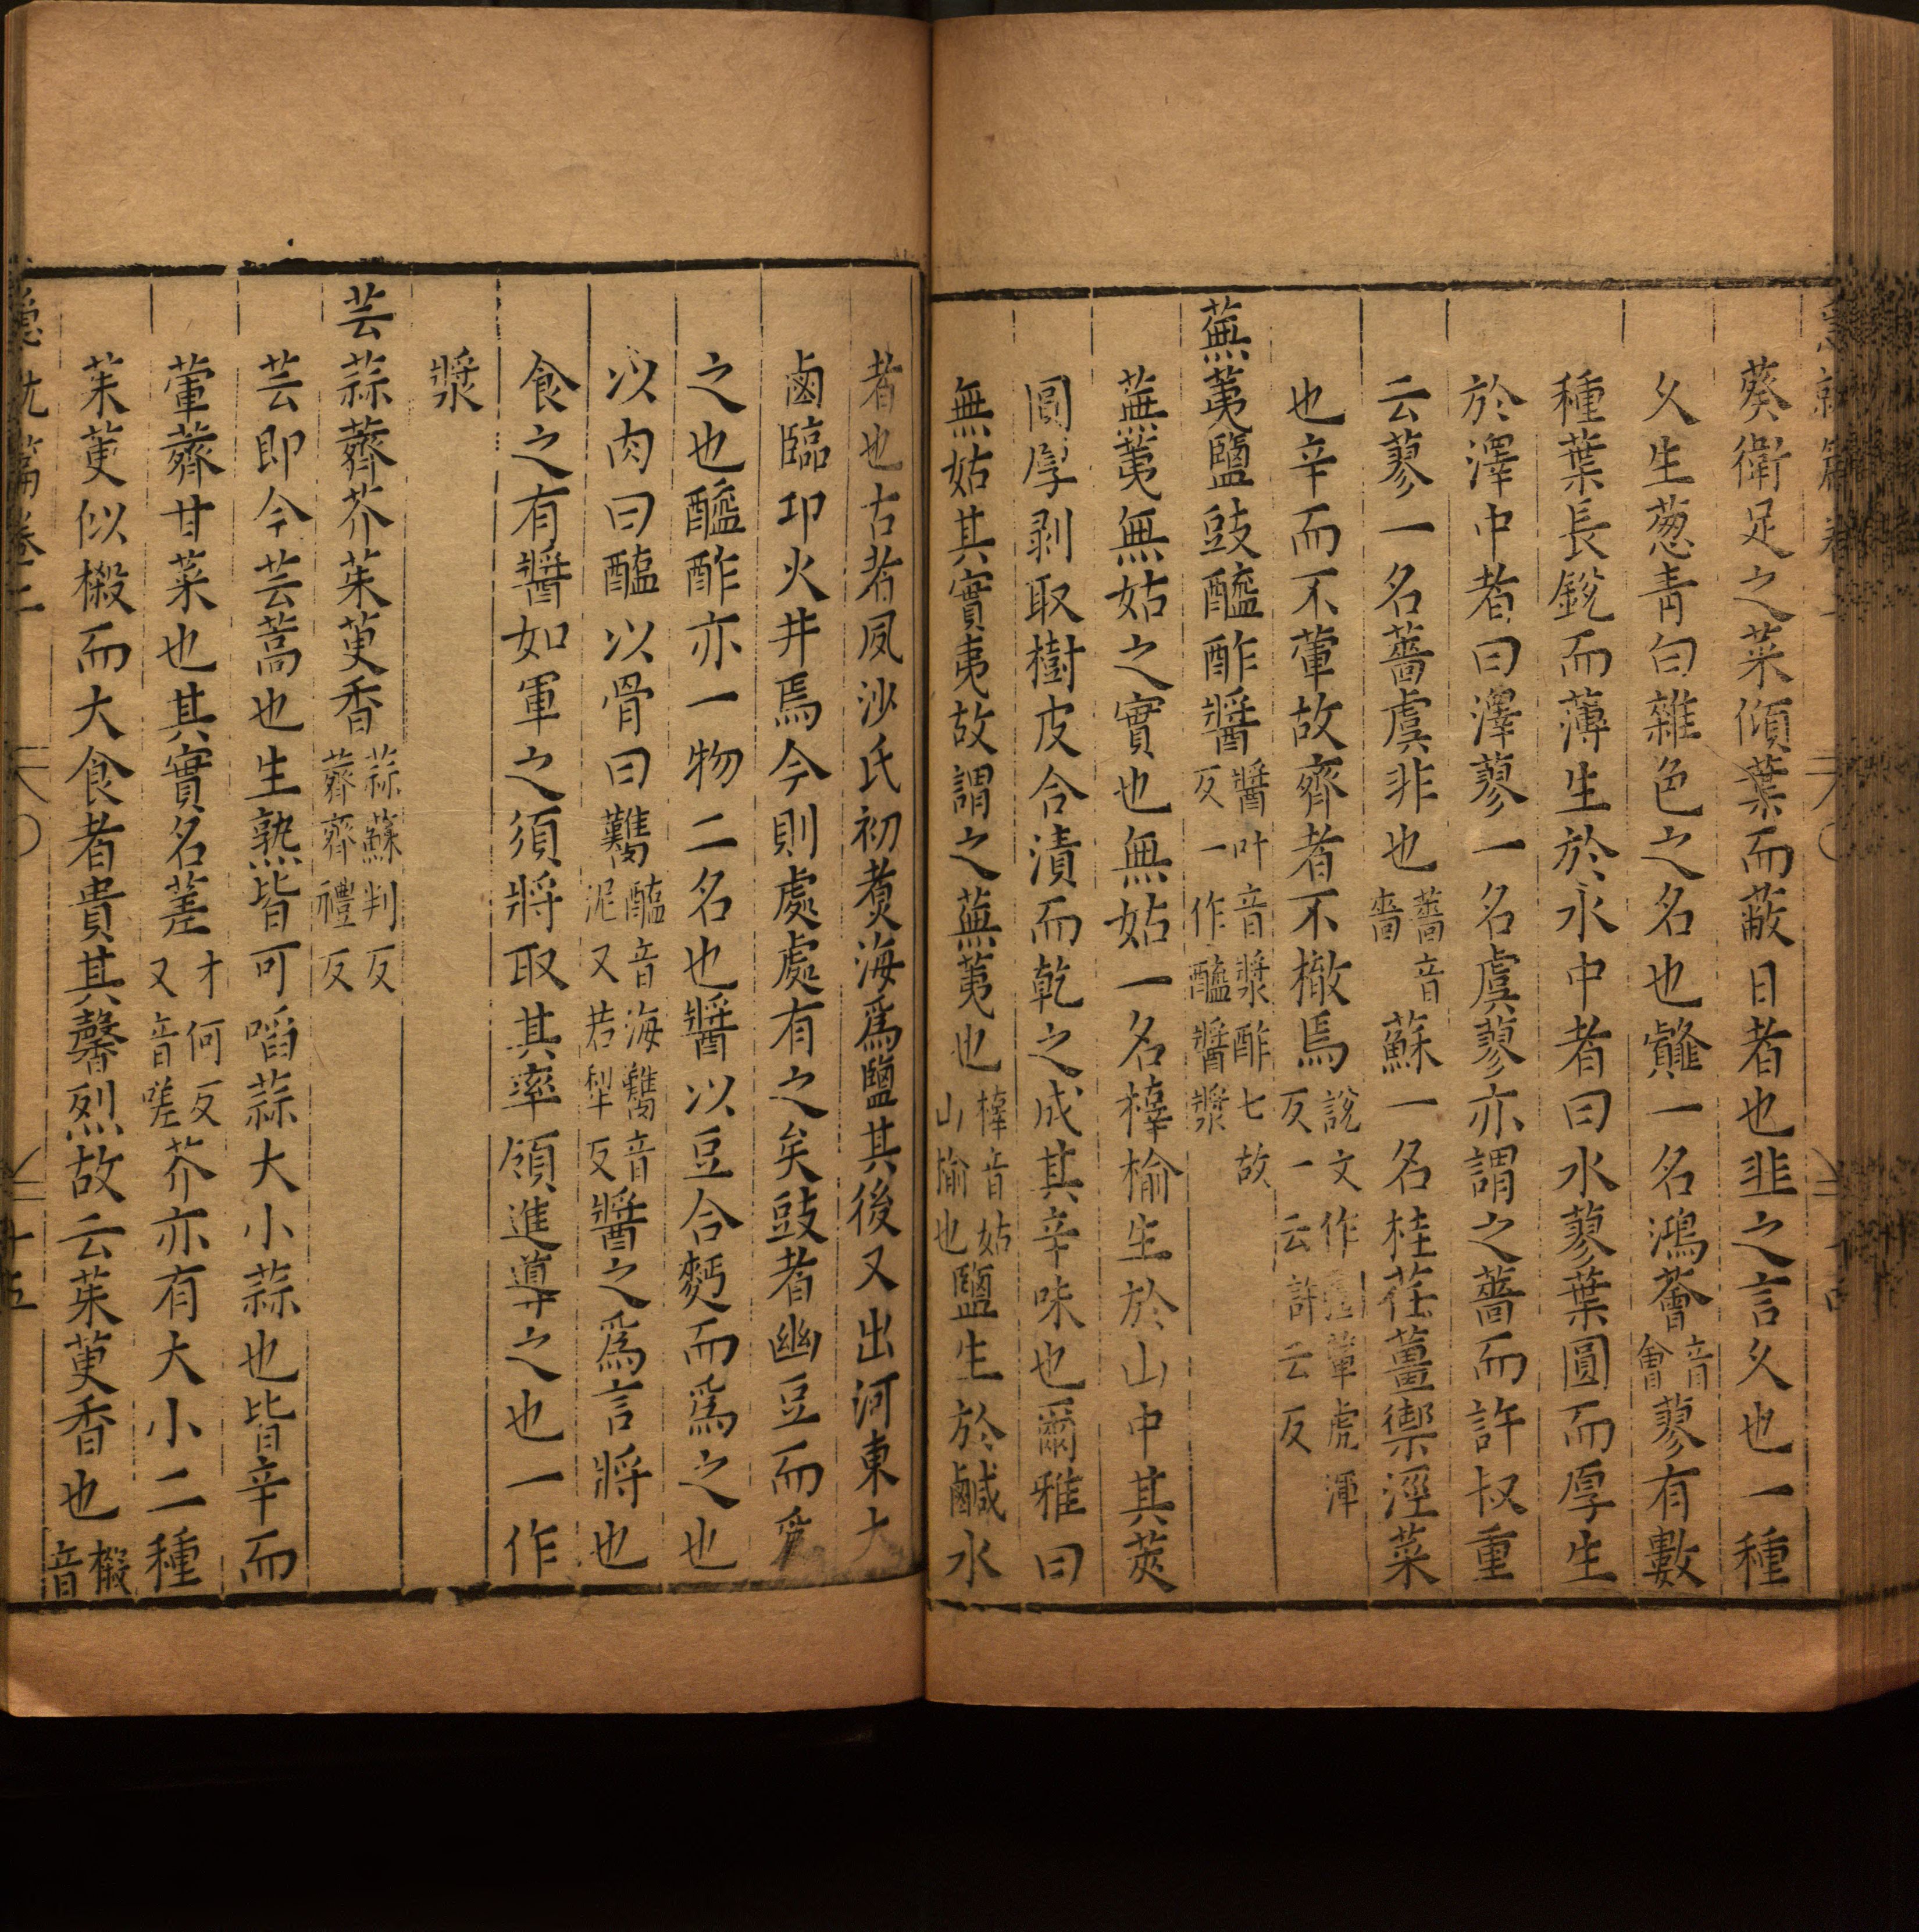 葵衛足之菜傾葉而蔽日者也韭之言久也一種
久生蔥青白雜色之名也䪥一名鴻薈音會蓼有數
種葉長銳而薄生於水中者曰水蓼葉圓而厚生
於澤中者曰澤蓼一名虞蓼亦謂之薔而許叔重
云蓼一名薔虞非也薔音嗇蘇一名桂荏薑禦溼菜
也辛而不葷故齊者不撤焉說文作葷虎渾反一云許云反
蕪荑鹽豉醯酢醬醬叶音漿酢七故反一作醯醬漿
蕪荑無姑之實也無姑一名樟榆生於山中其莢
圓厚剥取樹皮合漬而乾之成其辛味也爾雅曰
無姑其實夷故謂之蕪荑也樟音姑山榆也鹽生於鹹水
者也古者夙沙氏初煑海爲鹽其後又出河東大
鹵臨卭火井焉今則處處有之矣豉者幽豆而爲
之也醯酢亦一物二名也醬以豆合麪而爲之也
以肉曰醢以骨曰臡醢音海臡音泥又若犁反醬之爲言將也
食之有醬如軍之須將取其率領進導之也一作
漿
芸蒜薺芥茱萸香蒜蘇判反薺齊禮反
芸即今芸蒿也生熟皆可啗蒜大小蒜也皆辛而
葷薺甘菜也其實名蒫才何反又音嗟芥亦有大小二種
茱萸似樧而大食者貴其馨烈故云茱萸香也樧音
急就篇卷二
十五